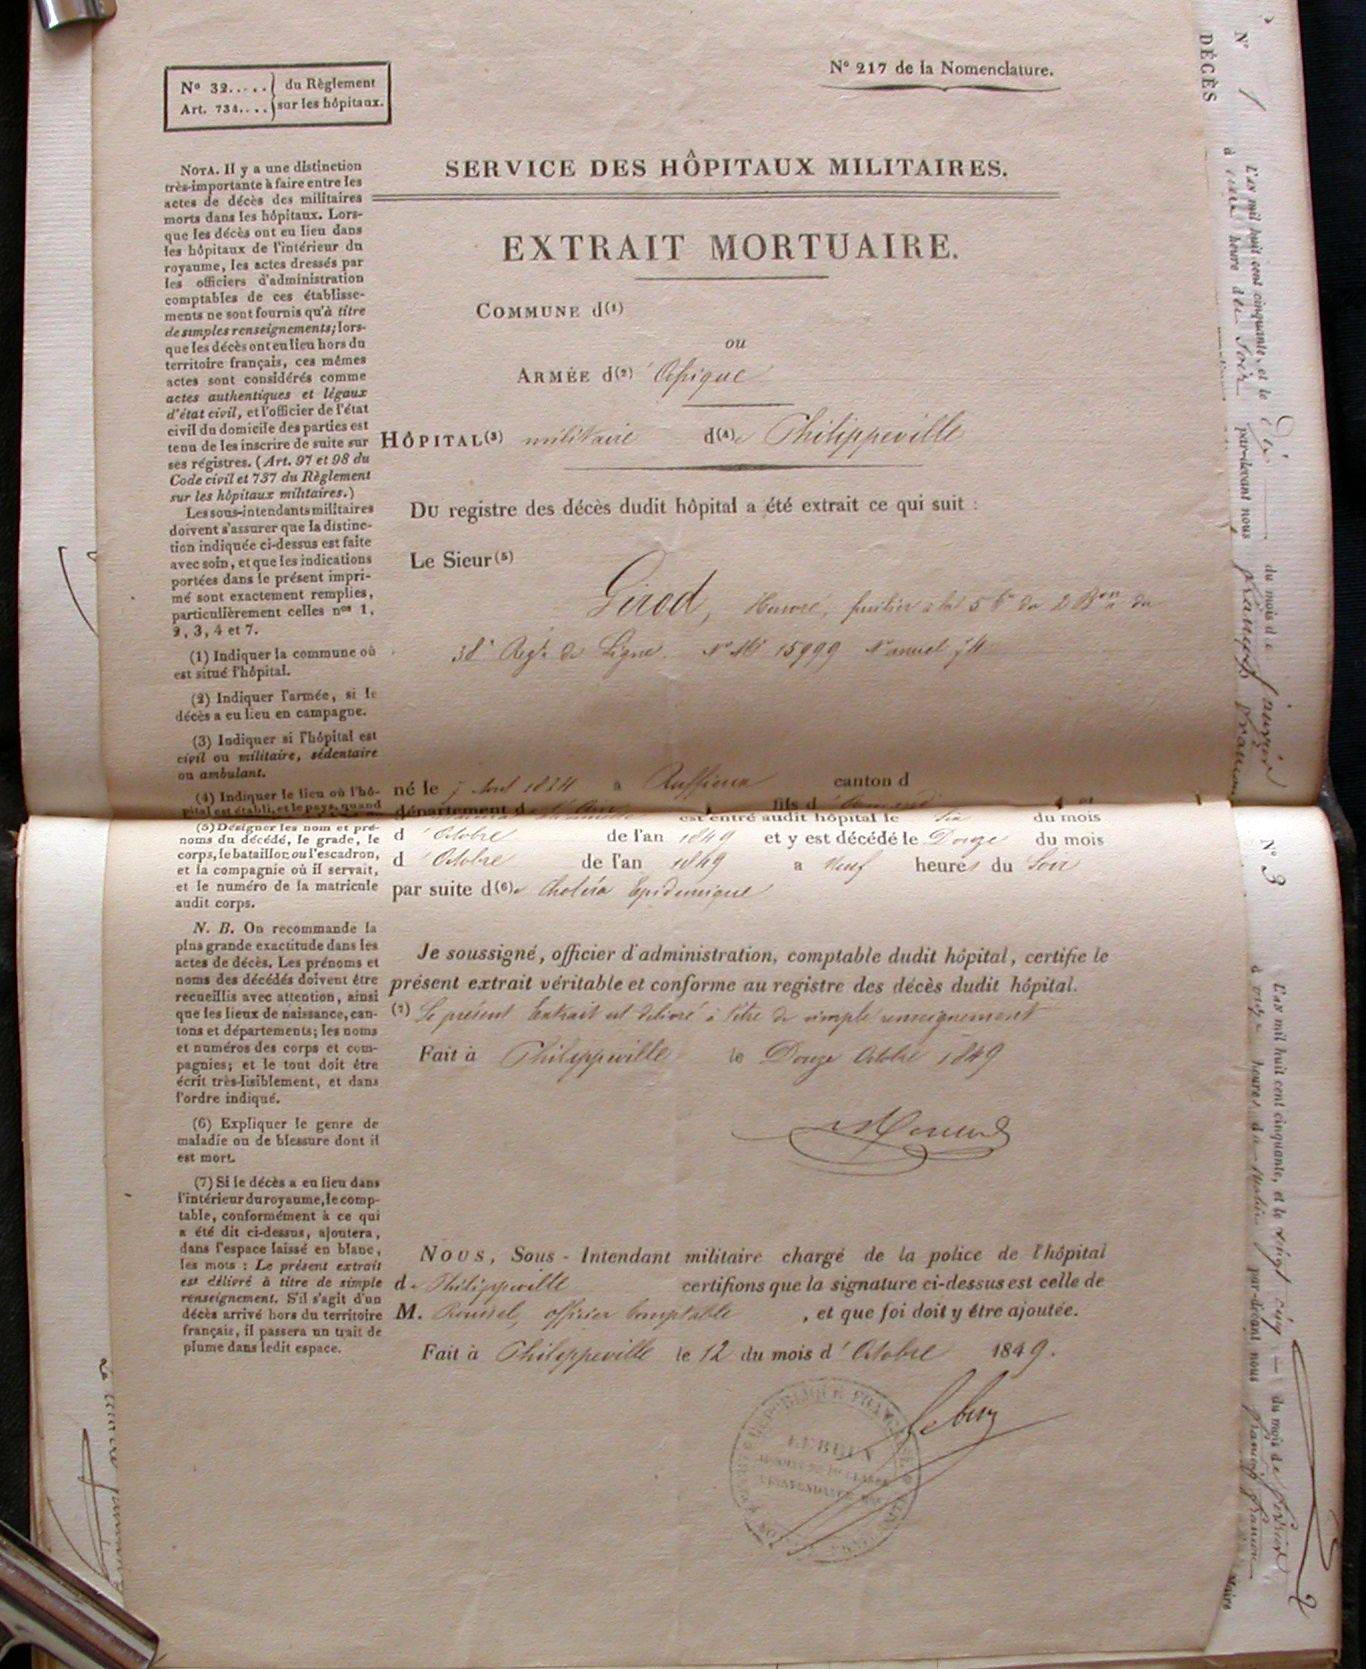 N° 32..... du Règlement
Art. 734.... sur les hôpitaux.
N° 217 de la Nomenclature.
SERVICE DES HÔPITAUX MILITAIRES.
EXTRAIT MORTUAIRE.
COMMUNE d(1)
ou
ARMÉE d(2)
HÔPITAL(3) militaire d(4)e Philippeville
Du registre des décès dudit hôpital a été extrait ce qui suit :
Le Sieur(5)
Girod, Honoré, fusilier à la 5e du 2 Bon du
38e Régt de Ligne. N° Mle 15999 N° annuel 74
né le 7 Avril 1824 à Ruffieux canton d
département d fils d
est entré audit hôpital le Six du mois
d'Octobre de l'an 1849 et y est décédé le Douze du mois
d'Octobre de l'an 1849 a Neuf heures du Soir
par suite d(6)e Choléra Epidémique
Je soussigné, officier d'administration, comptable dudit hôpital, certifie le
présent extrait véritable et conforme au registre des décès dudit hôpital.
(7) Le présent Extrait est délivré à titre de simple renseignement
Fait à Philippeville le Douze Octobre 1849
NOUS, Sous-Intendant militaire chargé de la police de l'hôpital
de Philippeville certifions que la signature ci-dessus est celle de
M. Roussel, officier Comptable, et que foi doit y être ajoutée.
Fait à Philippeville le 12 du mois d'Octobre 1849.
NOTA. Il y a une distinction
très-importante à faire entre les
actes de décès des militaires
morts dans les hôpitaux. Lors-
que les décès ont eu lieu dans
les hôpitaux de l'intérieur du
royaume, les actes dressés par
les officiers d'administration
comptables de ces établisse-
ments ne sont fournis qu'à titre
de simples renseignements; lors-
que les décès ont eu lieu hors du
territoire français, ces mêmes
actes sont considérés comme
actes authentiques et légaux
d'état civil, et l'officier de l'état
civil du domicile des parties est
tenu de les inscrire de suite sur
ses régistres. (Art. 97 et 98 du
Code civil et 737 du Règlement
sur les hôpitaux militaires.)
Les sous-intendants militaires
doivent s'assurer que la distinc-
tion indiquée ci-dessus est faite
avec soin, et que les indications
portées dans le présent impri-
mé sont exactement remplies,
particulièrement celles nos 1,
2, 3, 4 et 7.
(1) Indiquer la commune où
est situé l'hôpital.
(2) Indiquer l'armée, si le
décès a eu lieu en campagne.
(3) Indiquer si l'hôpital est
civil ou militaire, sédentaire
ou ambulant.
(4) Indiquer le lieu où l'hô-
pital est établi, et le pays, quand
(5) Désigner les nom et pré-
noms du décédé, le grade, le
corps, le bataillon ou l'escadron,
et la compagnie où il servait,
et le numéro de la matricule
audit corps.
N. B. On recommande la
plus grande exactitude dans les
actes de décès. Les prénoms et
noms des décédés doivent être
recueillis avec attention, ainsi
que les lieux de naissance, can-
tons et départements; les noms
et numéros des corps et com-
pagnies; et le tout doit être
écrit très-lisiblement, et dans
l'ordre indiqué.
(6) Expliquer le genre de
maladie ou de blessure dont il
est mort.
(7) Si le décès a eu lieu dans
l'intérieur du royaume, le comp-
table, conformément à ce qui
a été dit ci-dessus, ajoutera,
dans l'espace laissé en blanc,
les mots : Le présent extrait
est délivré à titre de simple
renseignement. S'il s'agit d'un
décès arrivé hors du territoire
français, il passera un trait de
plume dans ledit espace.
N° 1
DÉCÈS
L'an mil huit cent cinquante, et le Dix du mois de Janvier
à heure du Soir par-devant nous
N° 3
L'an mil huit cent cinquante, et le vingt cinq du mois de février
à heures du Matin par-devant nous
Maire
LEBRUN